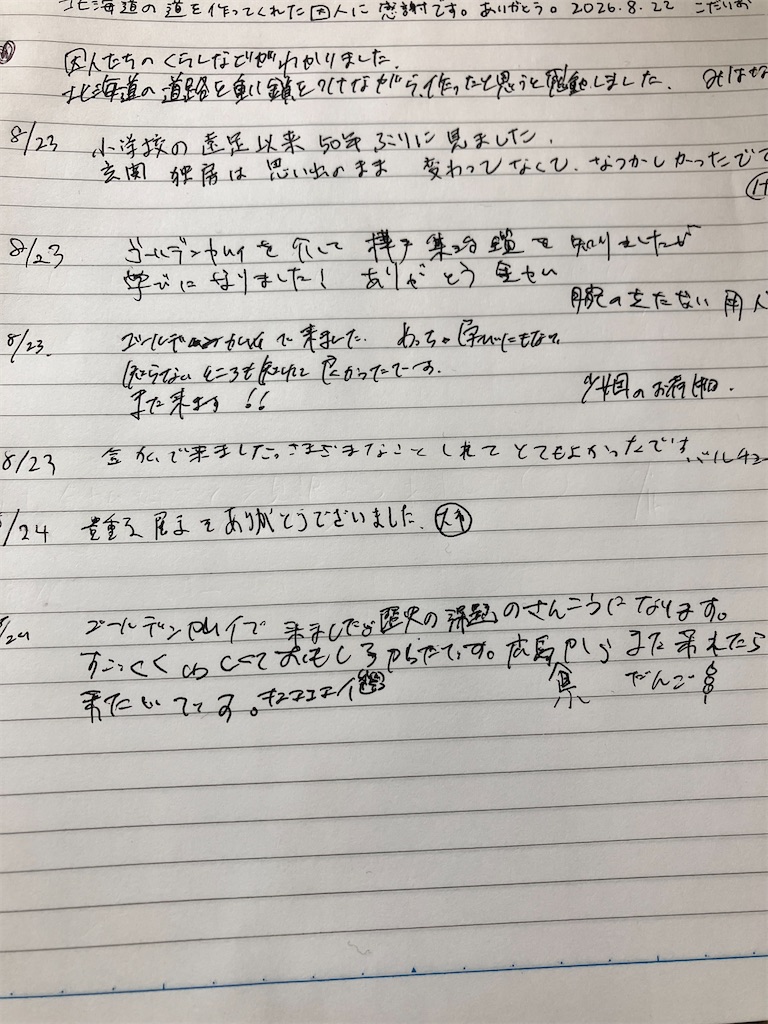 北海道の道を作ってくれた囚人に感謝です。ありがとう。2026.8.22 こだいお
囚人たちのくらしなどがわかりました。
北海道の道路を重い鎖をつけながら、作ったと思うと感動しました。みはな
8/23 小学校の遠足以来 50年ぶりに見ました。
玄関 独房は 思い出のまま 変わってなくて、なつかしかったです
8/23 ゴールデンカムイを介して 樺戸集治監を知りましたが
学びになりました！ ありがとうございます
8/23. ゴールデンカムイで来ました。めっちゃ学びにもなって
知らないところも知れて良かったです。
また来ます！！
8/23 金カムで来ました。さまざまなことしれてとてもよかったです。
/24 貴重な展示をありがとうございました。
/24 ゴールデンカムイで来ましたが歴史の課題のさんこうになります。
すごくくわしくておもしろかったです。広島からまた来れたら
県 だんご
来たいです。